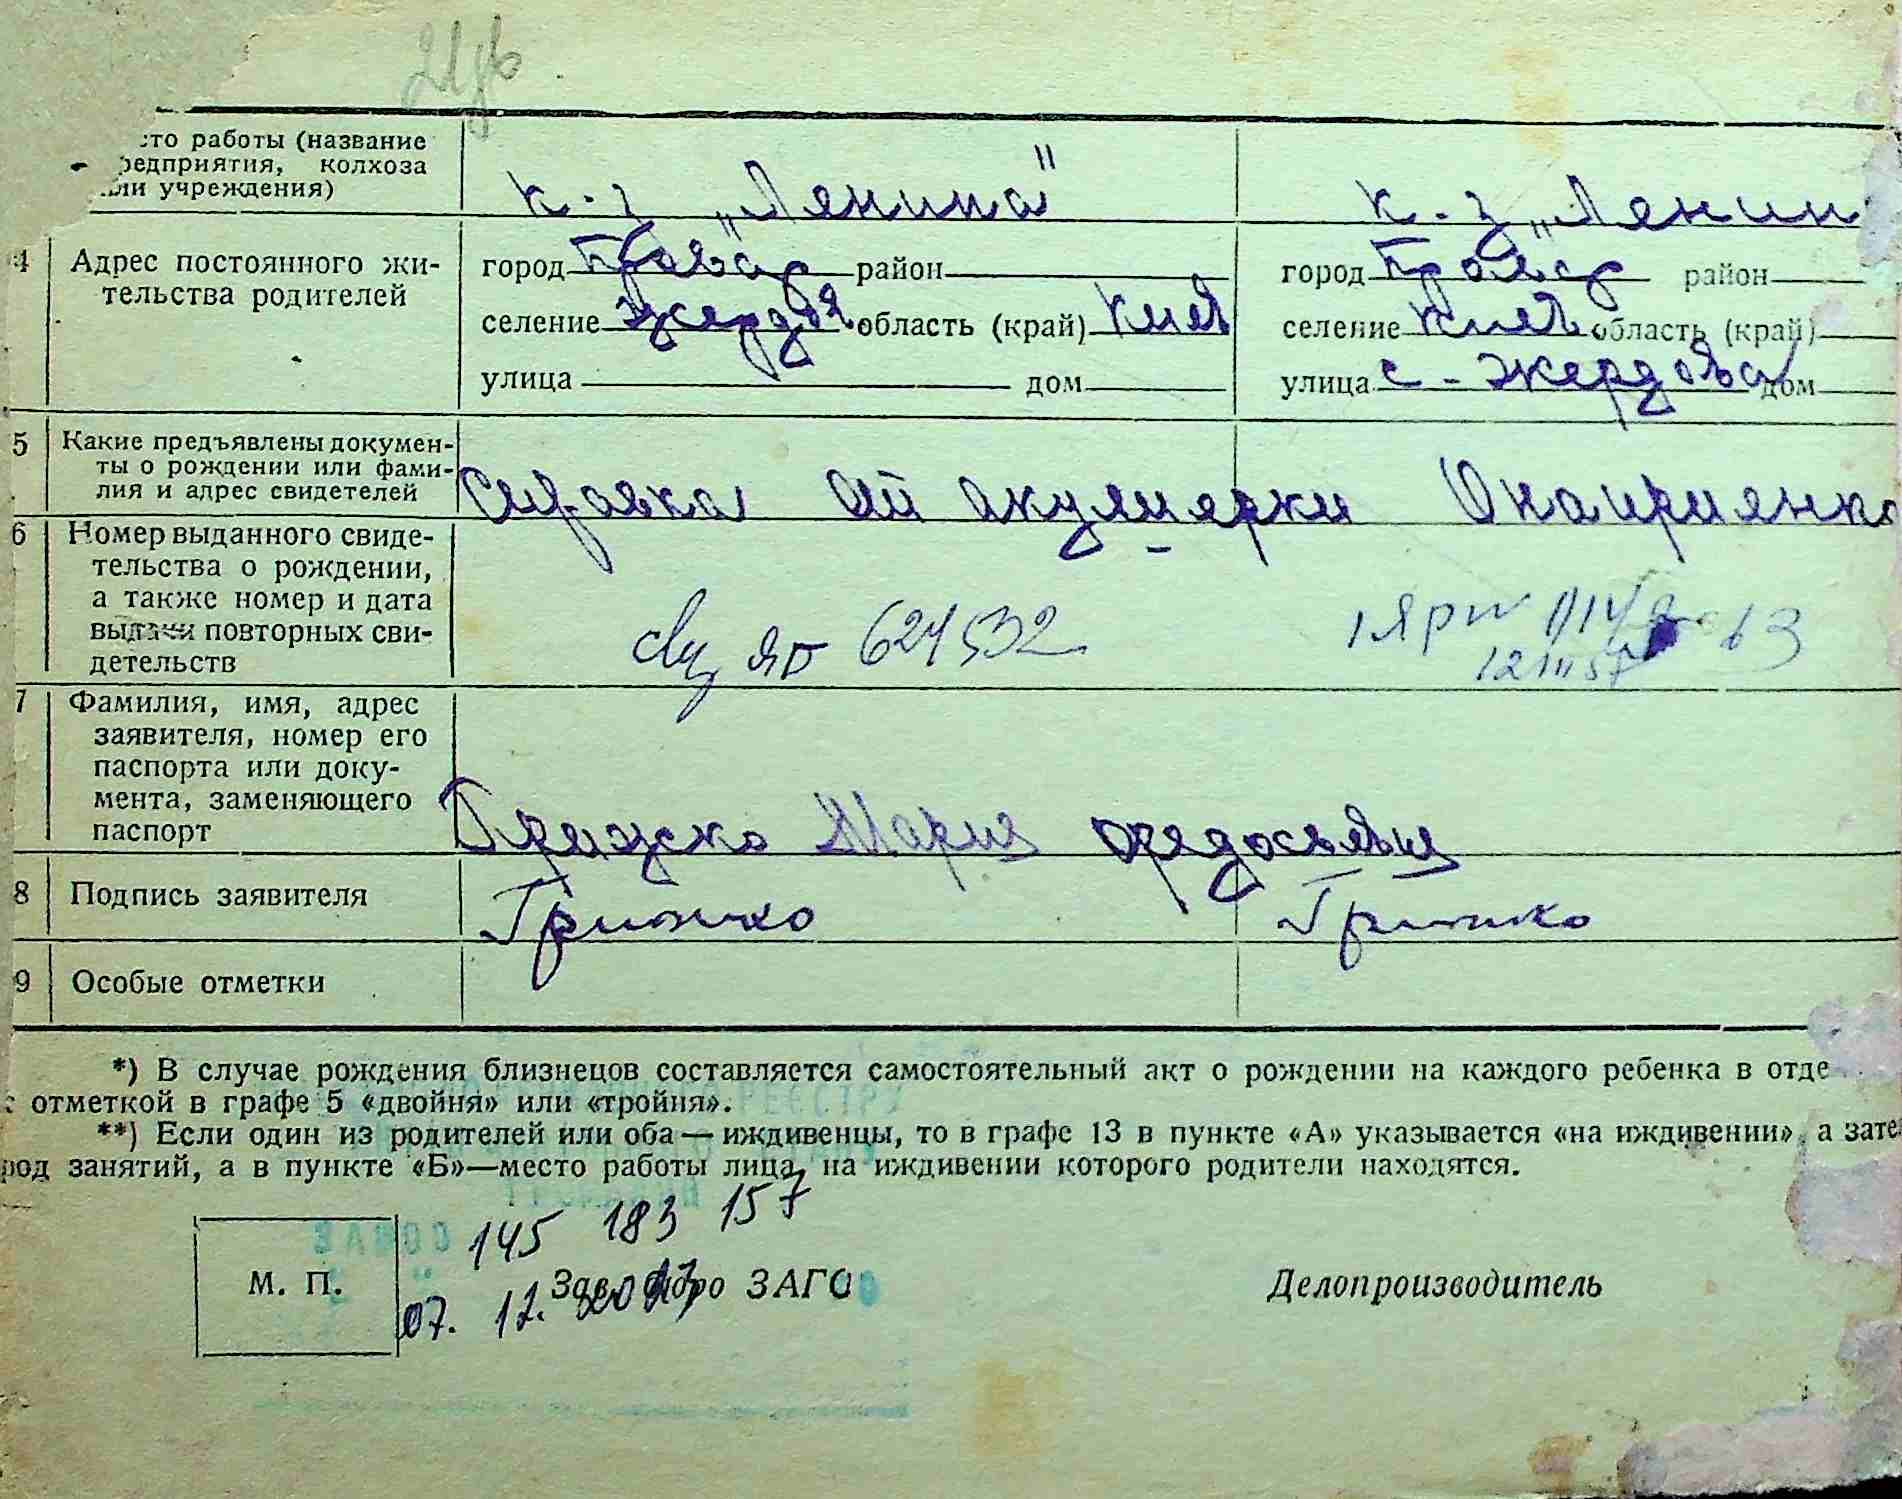 сто работы (название
редприятия, колхоза
или учреждения)
к-з „Ленина"
к-з „Ленин
4 Адрес постоянного жи-
тельства родителей
город Бровар район
селение Жердова область (край) Киев
улица дом
город Бровар район
селение Киев область (край)
улица с-Жердова дом
5 Какие предъявлены докумен-
ты о рождении или фами-
лия и адрес свидетелей
Справка от акушерки Онаприенко
6 Номер выданного свиде-
тельства о рождении,
а также номер и дата
выдачи повторных сви-
детельств
ЯБ 621532
12 III 57
7 Фамилия, имя, адрес
заявителя, номер его
паспорта или доку-
мента, заменяющего
паспорт
Грижско Мария
8 Подпись заявителя
Грижко Грижко
9 Особые отметки
*) В случае рождения близнецов составляется самостоятельный акт о рождении на каждого ребенка в отде
с отметкой в графе 5 «двойня» или «тройня».
**) Если один из родителей или оба — иждивенцы, то в графе 13 в пункте «А» указывается «на иждивении», а зате
род занятий, а в пункте «Б»—место работы лица, на иждивении которого родители находятся.
145 183 157
М. П.
Зав. бюро ЗАГС
Делопроизводитель
07. 12.